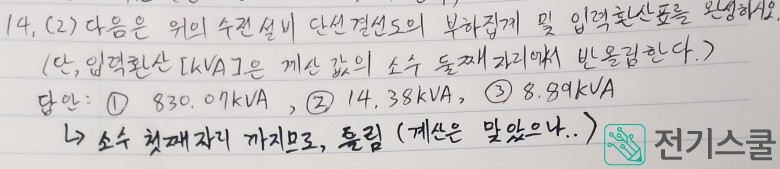 14, (2) 다음은 위의 수전설비 단선결선도의 부하집계 및 입력환산표를 완성하시오
(단, 입력환산 [KVA]은 계산 값의 소수 둘째자리에서 반올림한다.)
답안: ① 830.07KVA , ② 14.38KVA, ③ 8.89KVA
↳ 소수 첫째자리 까지므로, 틀림 (계산은 맞았으나..)
전기스쿨